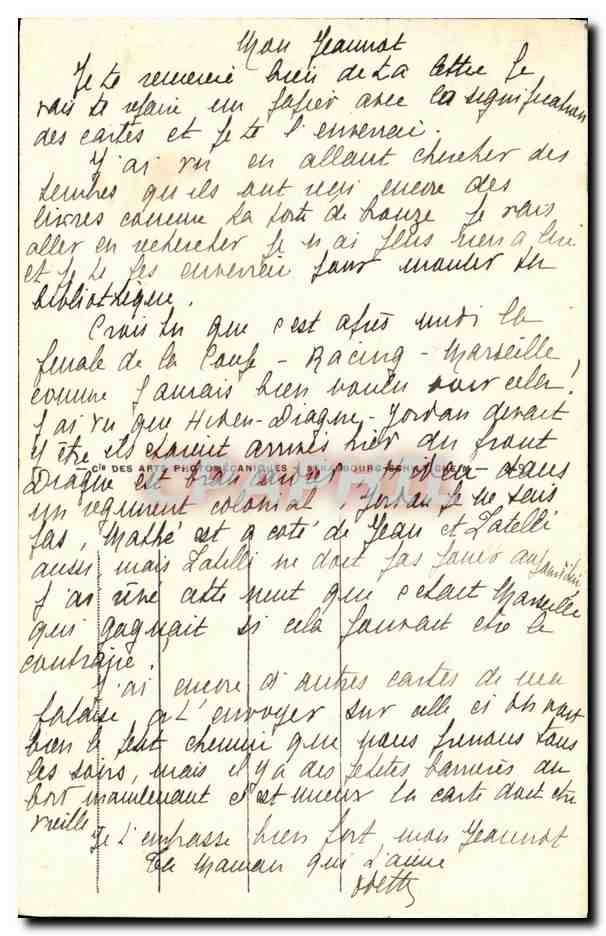 Mon Jeannot
Je te remercie bien de ta lettre Je
vais te refaire un papier avec la signification
des cartes et je te l'enverrai.
J'ai vu en allant chercher des
timbres qu'ils ont reçu encore des
livres comme la porte de bronze je vais
aller en rechercher je n'ai plus rien a lire
et je te les enverrai pour monter ta
bibliothèque.
Crois tu que c'est après midi la
finale de la Coupe - Racing - Marseille
comme j'aurais bien voulu voir cela!
J'ai vu que Hiden - Diagne - Jordan devait
y être ils étaient arrivés hier du front
Cie DES ARTS PHOTOMÉCANIQUES
Diagne est dans
un régiment colonial, Jordan je ne sais
pas, Mathé est a coté de Jean et Zatelli
aussi mais Zatelli ne doit pas jouer aujourd'hui
J'ai rêvé cette nuit que c'était Marseille
qui gagnait si cela pouvait être le
contraire.
J'ai encore d'autres cartes de ma
falaise a t'envoyer sur celle ci on voit
bien le petit chemin que nous prenons tous
les soirs, mais il y a des petites barrières au
bord maintenant c'est mieux la carte doit être
vieille
Je t'embrasse bien fort mon Jeannot
Ta Maman qui t'aime
Odette